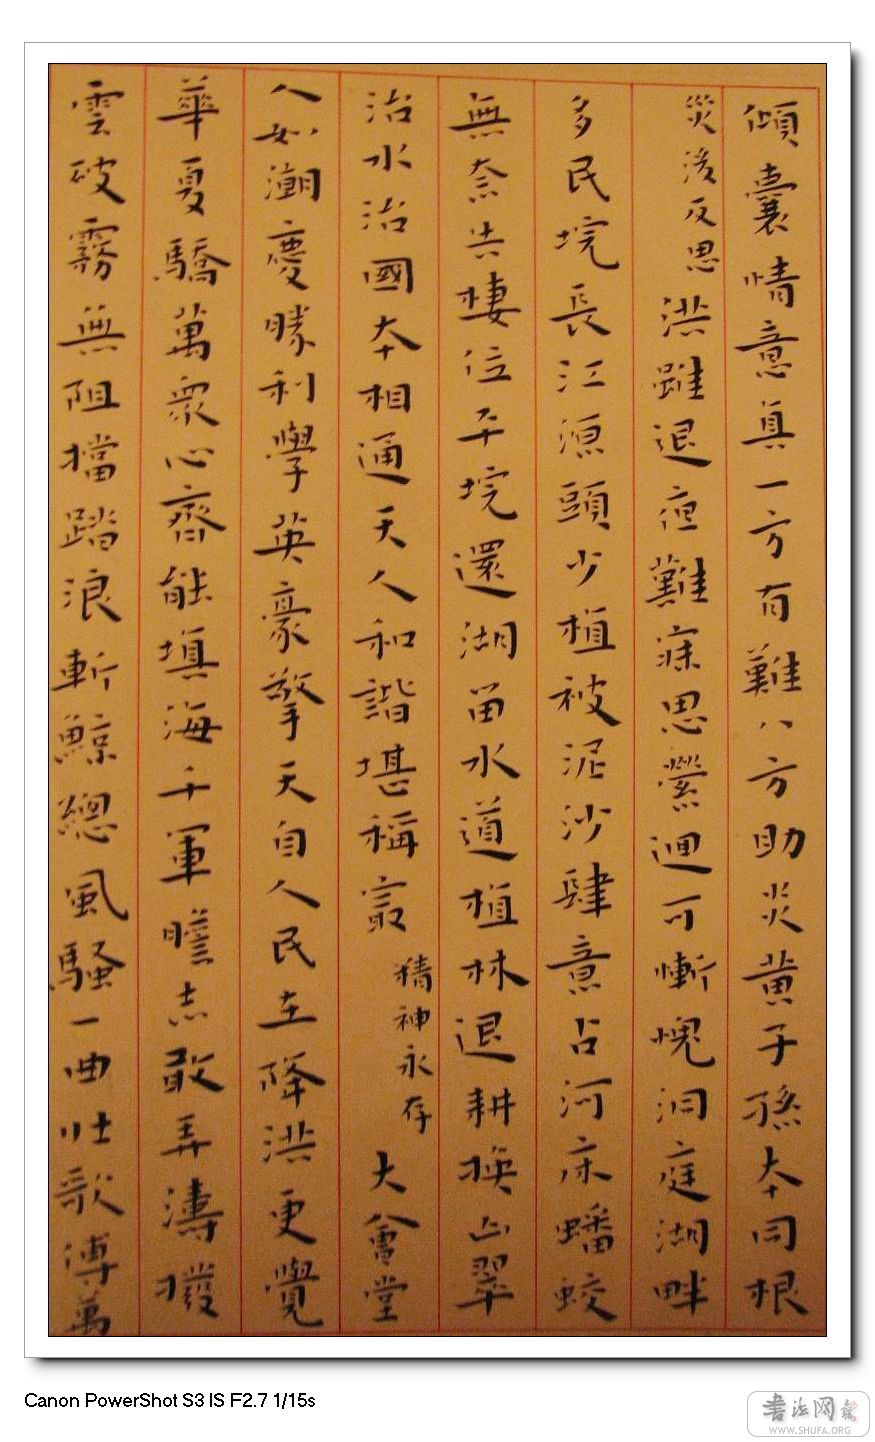 傾囊情意真一方有難八方助炎黃子孫本同根
災後反思 洪雖退夜難寐思縈迴可慚愧洞庭湖畔
多民垸長江源頭少植被泥沙肆意占河床蟠蛟
無奈告棲位平垸還湖留水道植林退耕換山翠
治水治國本相通天人和諧堪稱最 精神永存 大會堂
人如潮慶勝利學英豪擎天自人民在降洪更覺
華夏驕萬衆心齊能填海千軍膽志敢弄濤撥
雲破霧無阻擋踏浪斬鯨總風騷一曲壯歌傳萬
Canon PowerShot S3 IS F2.7 1/15s
书法网
WWW.SHUFA.ORG